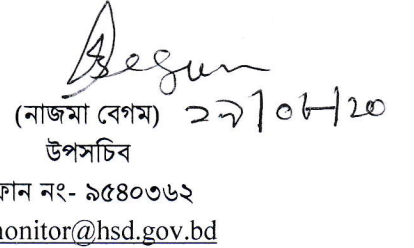 Begum
(নাজমা বেগম)
উপসচিব
ফান নং- ৯৫৪০৩৬২
onitor@hsd.gov.bd